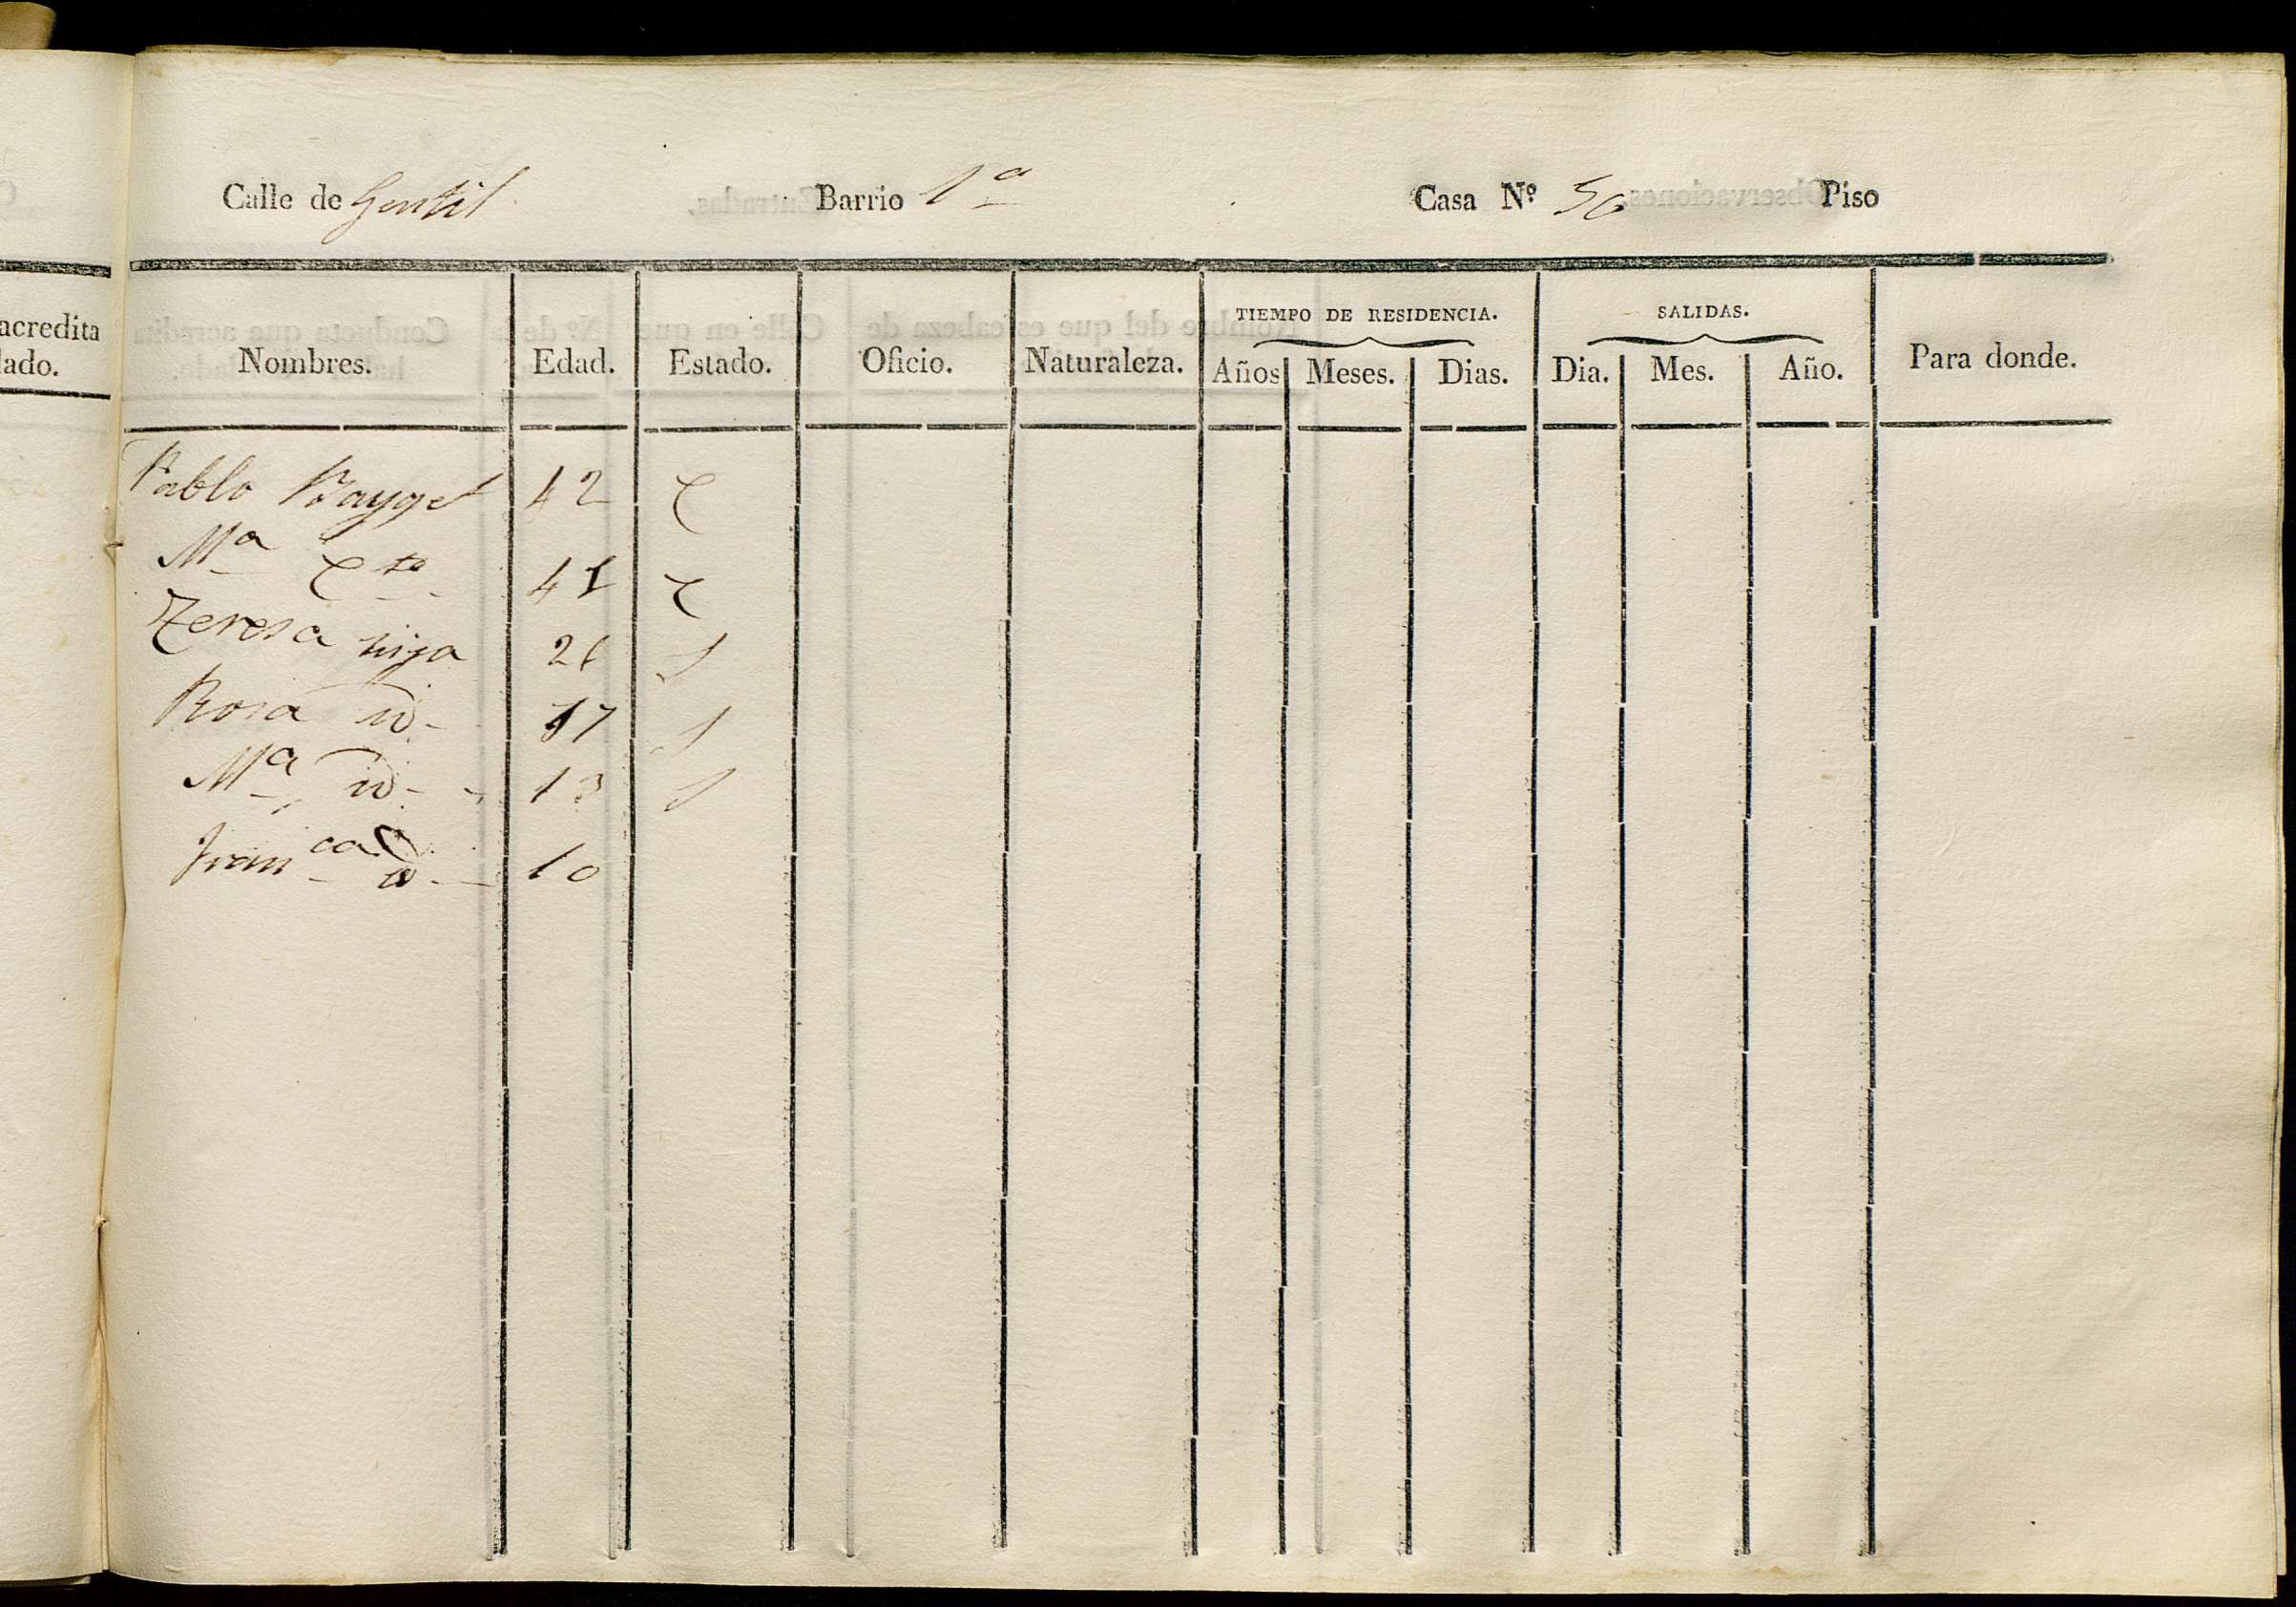 acredita
lado.
Calle de Gentil Barrio 1ª Casa Nº 50 Piso
Nombres. Edad. Estado. Oficio. Naturaleza. TIEMPO DE RESIDENCIA. Años Meses. Dias. SALIDAS. Dia. Mes. Año. Para donde.
Pablo Bayget 42 C
Mª Cta 41 C
Teresa hija 21 S
Rosa id 17 S
Mª id 13 S
Franca id 10